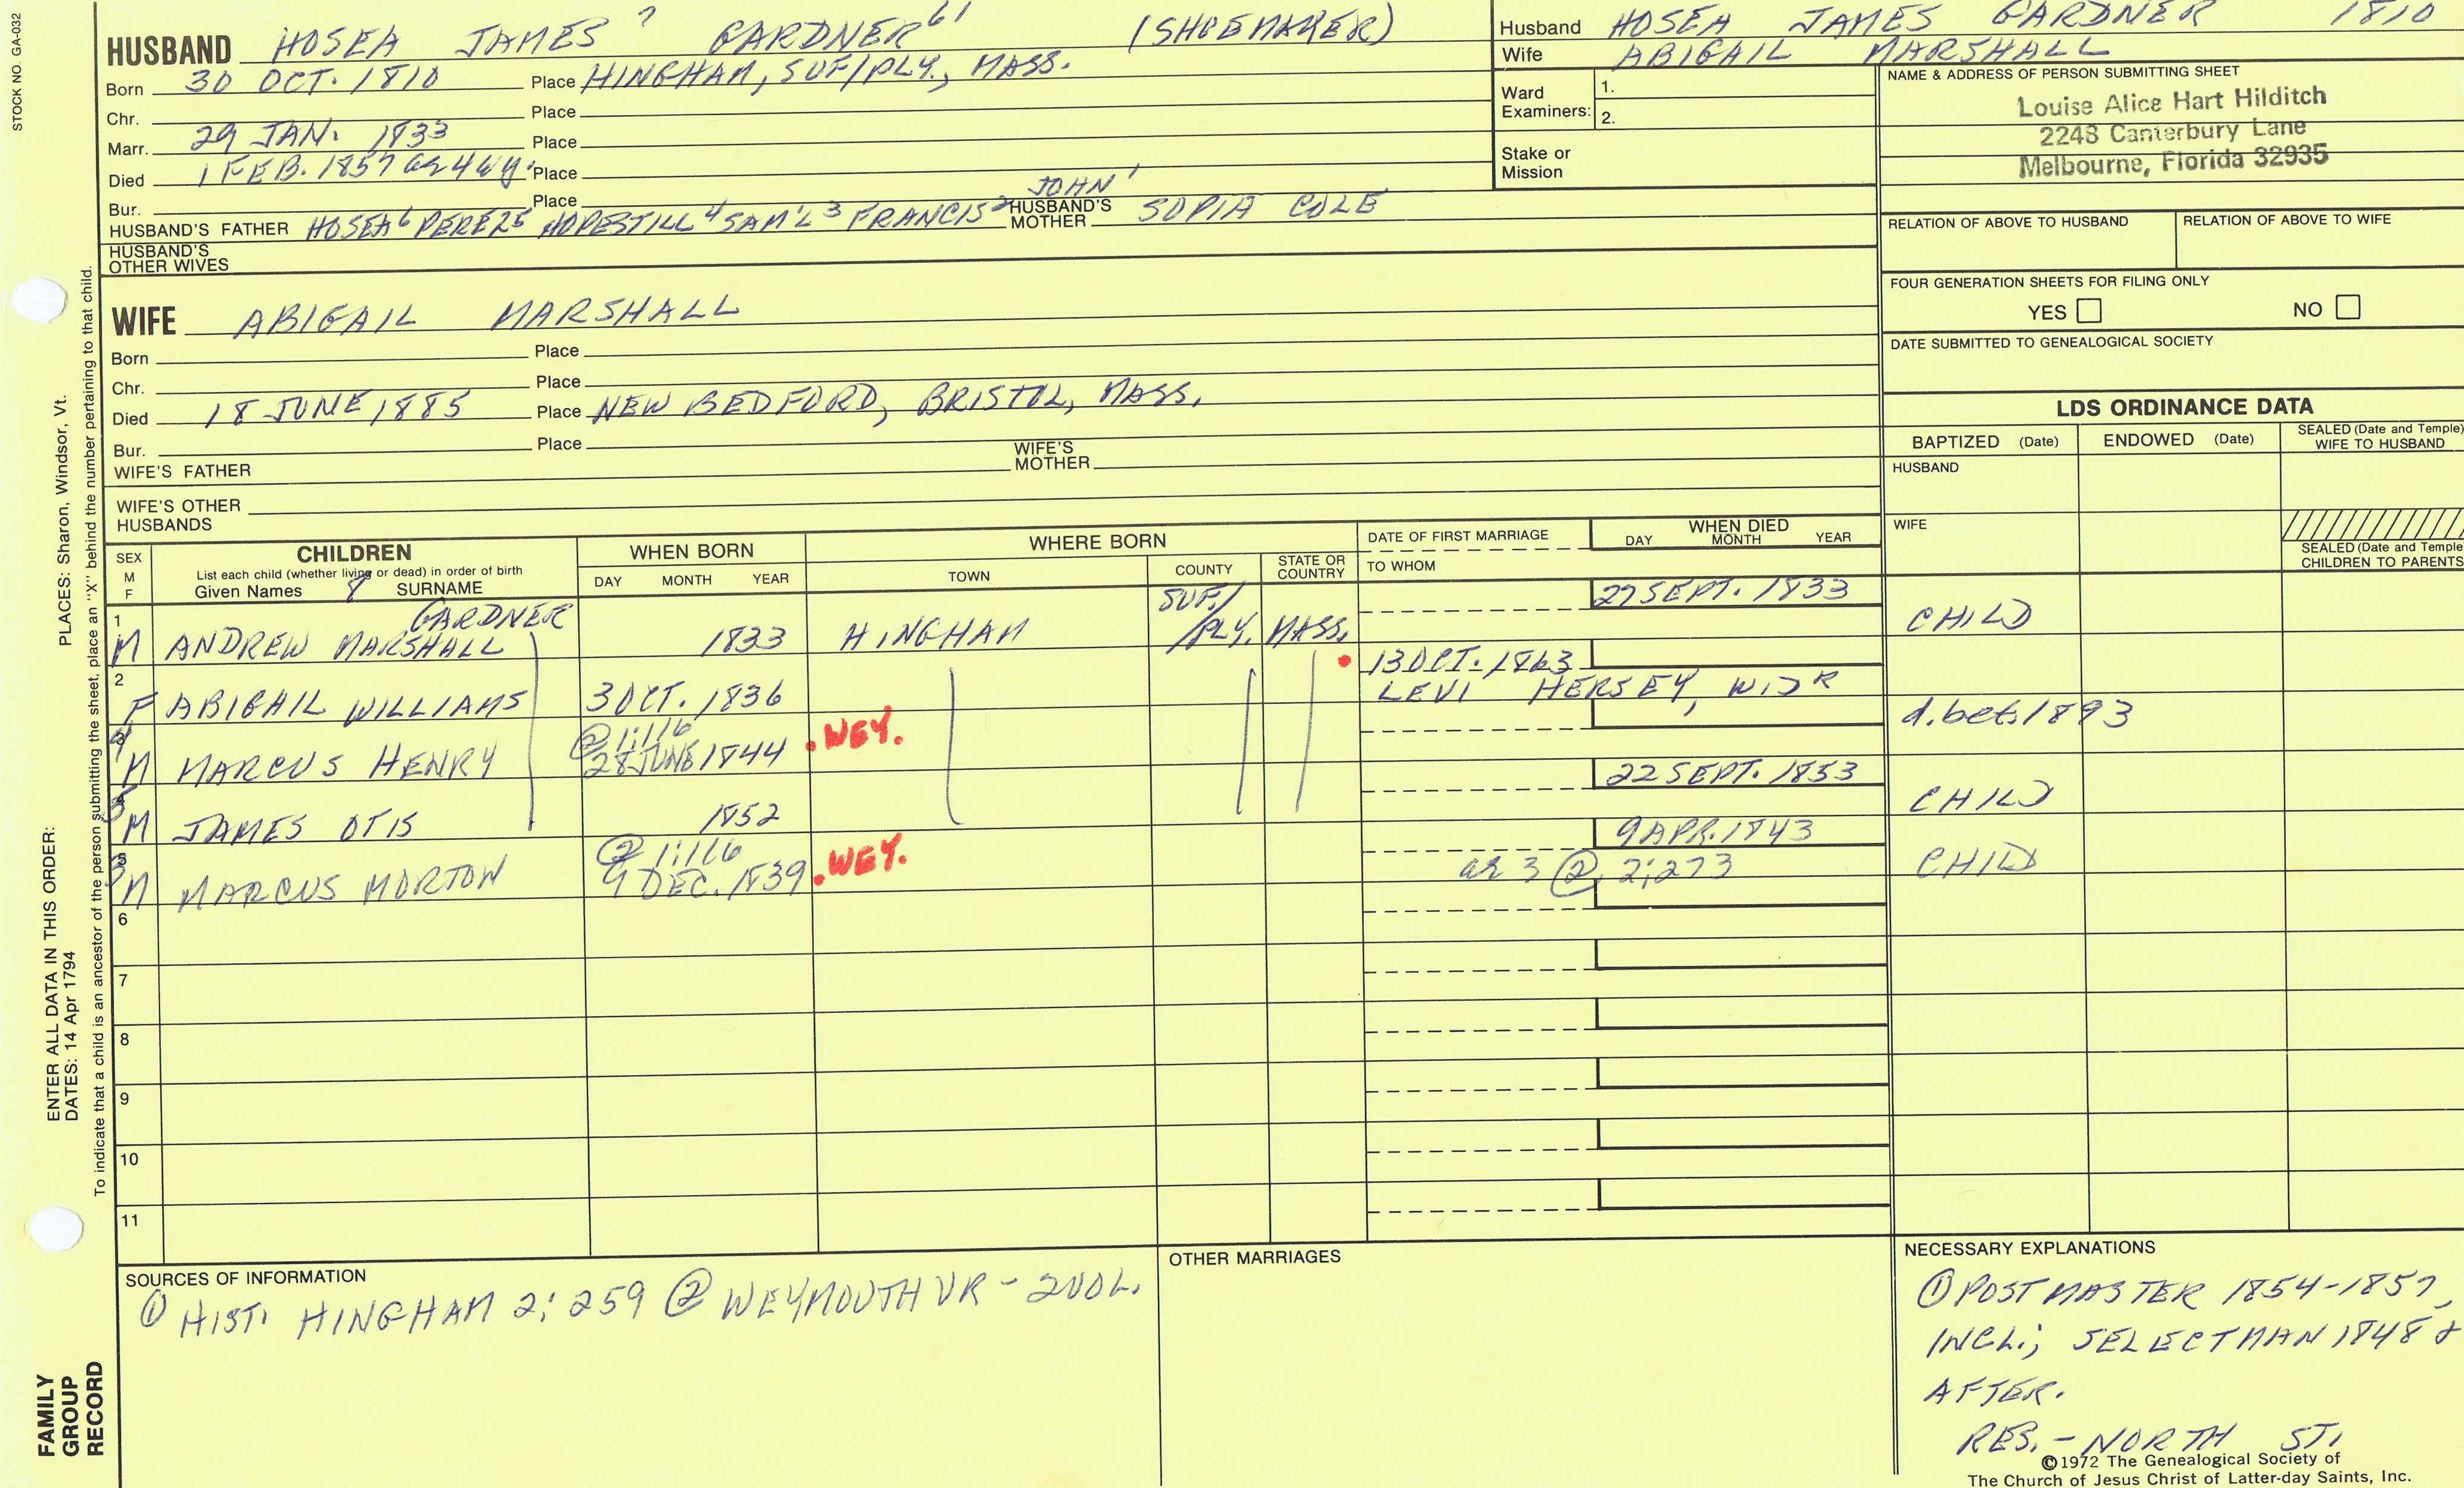 STOCK NO. GA-032
HUSBAND HOSEA JAMES 7 GARDNER 61 (SHOEMAKER)
Born 30 OCT. 1810 Place HINGHAM, SUF/PLY., MASS.
Chr. Place
Marr. 29 JAN. 1833 Place
Died 1 FEB. 1857 ae 44y. Place
Bur. Place
HUSBAND'S FATHER HOSEA 6 PEREZ 5 HOPESTILL 4 SAM'L 3 FRANCIS 2 JOHN 1 HUSBAND'S MOTHER SOPIA COLE
HUSBAND'S OTHER WIVES
WIFE ABIGAIL MARSHALL
Born Place
Chr. Place
Died 18 JUNE 1885 Place NEW BEDFORD, BRISTOL, MASS.
Bur. Place
WIFE'S FATHER WIFE'S MOTHER
WIFE'S OTHER HUSBANDS
Husband HOSEA JAMES GARDNER 1810
Wife ABIGAIL MARSHALL
Ward Examiners: 1.
2.
Stake or Mission
NAME & ADDRESS OF PERSON SUBMITTING SHEET
Louise Alice Hart Hilditch
2248 Canterbury Lane
Melbourne, Florida 32935
RELATION OF ABOVE TO HUSBAND RELATION OF ABOVE TO WIFE
FOUR GENERATION SHEETS FOR FILING ONLY
YES NO
DATE SUBMITTED TO GENEALOGICAL SOCIETY
LDS ORDINANCE DATA
BAPTIZED (Date) ENDOWED (Date) SEALED (Date and Temple) WIFE TO HUSBAND
HUSBAND
WIFE
SEALED (Date and Temple
CHILDREN TO PARENTS
SEX M F
CHILDREN
List each child (whether living or dead) in order of birth
Given Names 8 SURNAME
WHEN BORN
DAY MONTH YEAR
WHERE BORN
TOWN COUNTY STATE OR COUNTRY
DATE OF FIRST MARRIAGE
TO WHOM
WHEN DIED
DAY MONTH YEAR
GARDNER SUF./ 27 SEPT. 1833
1 M ANDREW MARSHALL 1833 HINGHAM /PLY. MASS. CHILD
13 OCT. 1863
2 F ABIGAIL WILLIAMS 3 OCT. 1836 LEVI HERSEY, WIDR d.bet.1893
@ 1:116 . WEY.
4 M MARCUS HENRY 28 JUNE 1844
22 SEPT. 1853
5 M JAMES OTIS 1852 CHILD
@ 1:116 9 APR. 1843
3 M MARCUS MORTON 9 DEC. 1839 . WEY. ae 3 @ 2:273 CHILD
6
7
8
9
10
11
SOURCES OF INFORMATION
① HIST. HINGHAM 2:259 ② WEYMOUTH VR - 2 VOL.
OTHER MARRIAGES
NECESSARY EXPLANATIONS
① POSTMASTER 1854-1857,
INCL.; SELECTMAN 1848 &
AFTER.
RES. - NORTH ST.
©1972 The Genealogical Society of
The Church of Jesus Christ of Latter-day Saints, Inc.
ENTER ALL DATA IN THIS ORDER: PLACES: Sharon, Windsor, Vt.
DATES: 14 Apr 1794
To indicate that a child is an ancestor of the person submitting the sheet, place an "X" behind the number pertaining to that child.
FAMILY
GROUP
RECORD